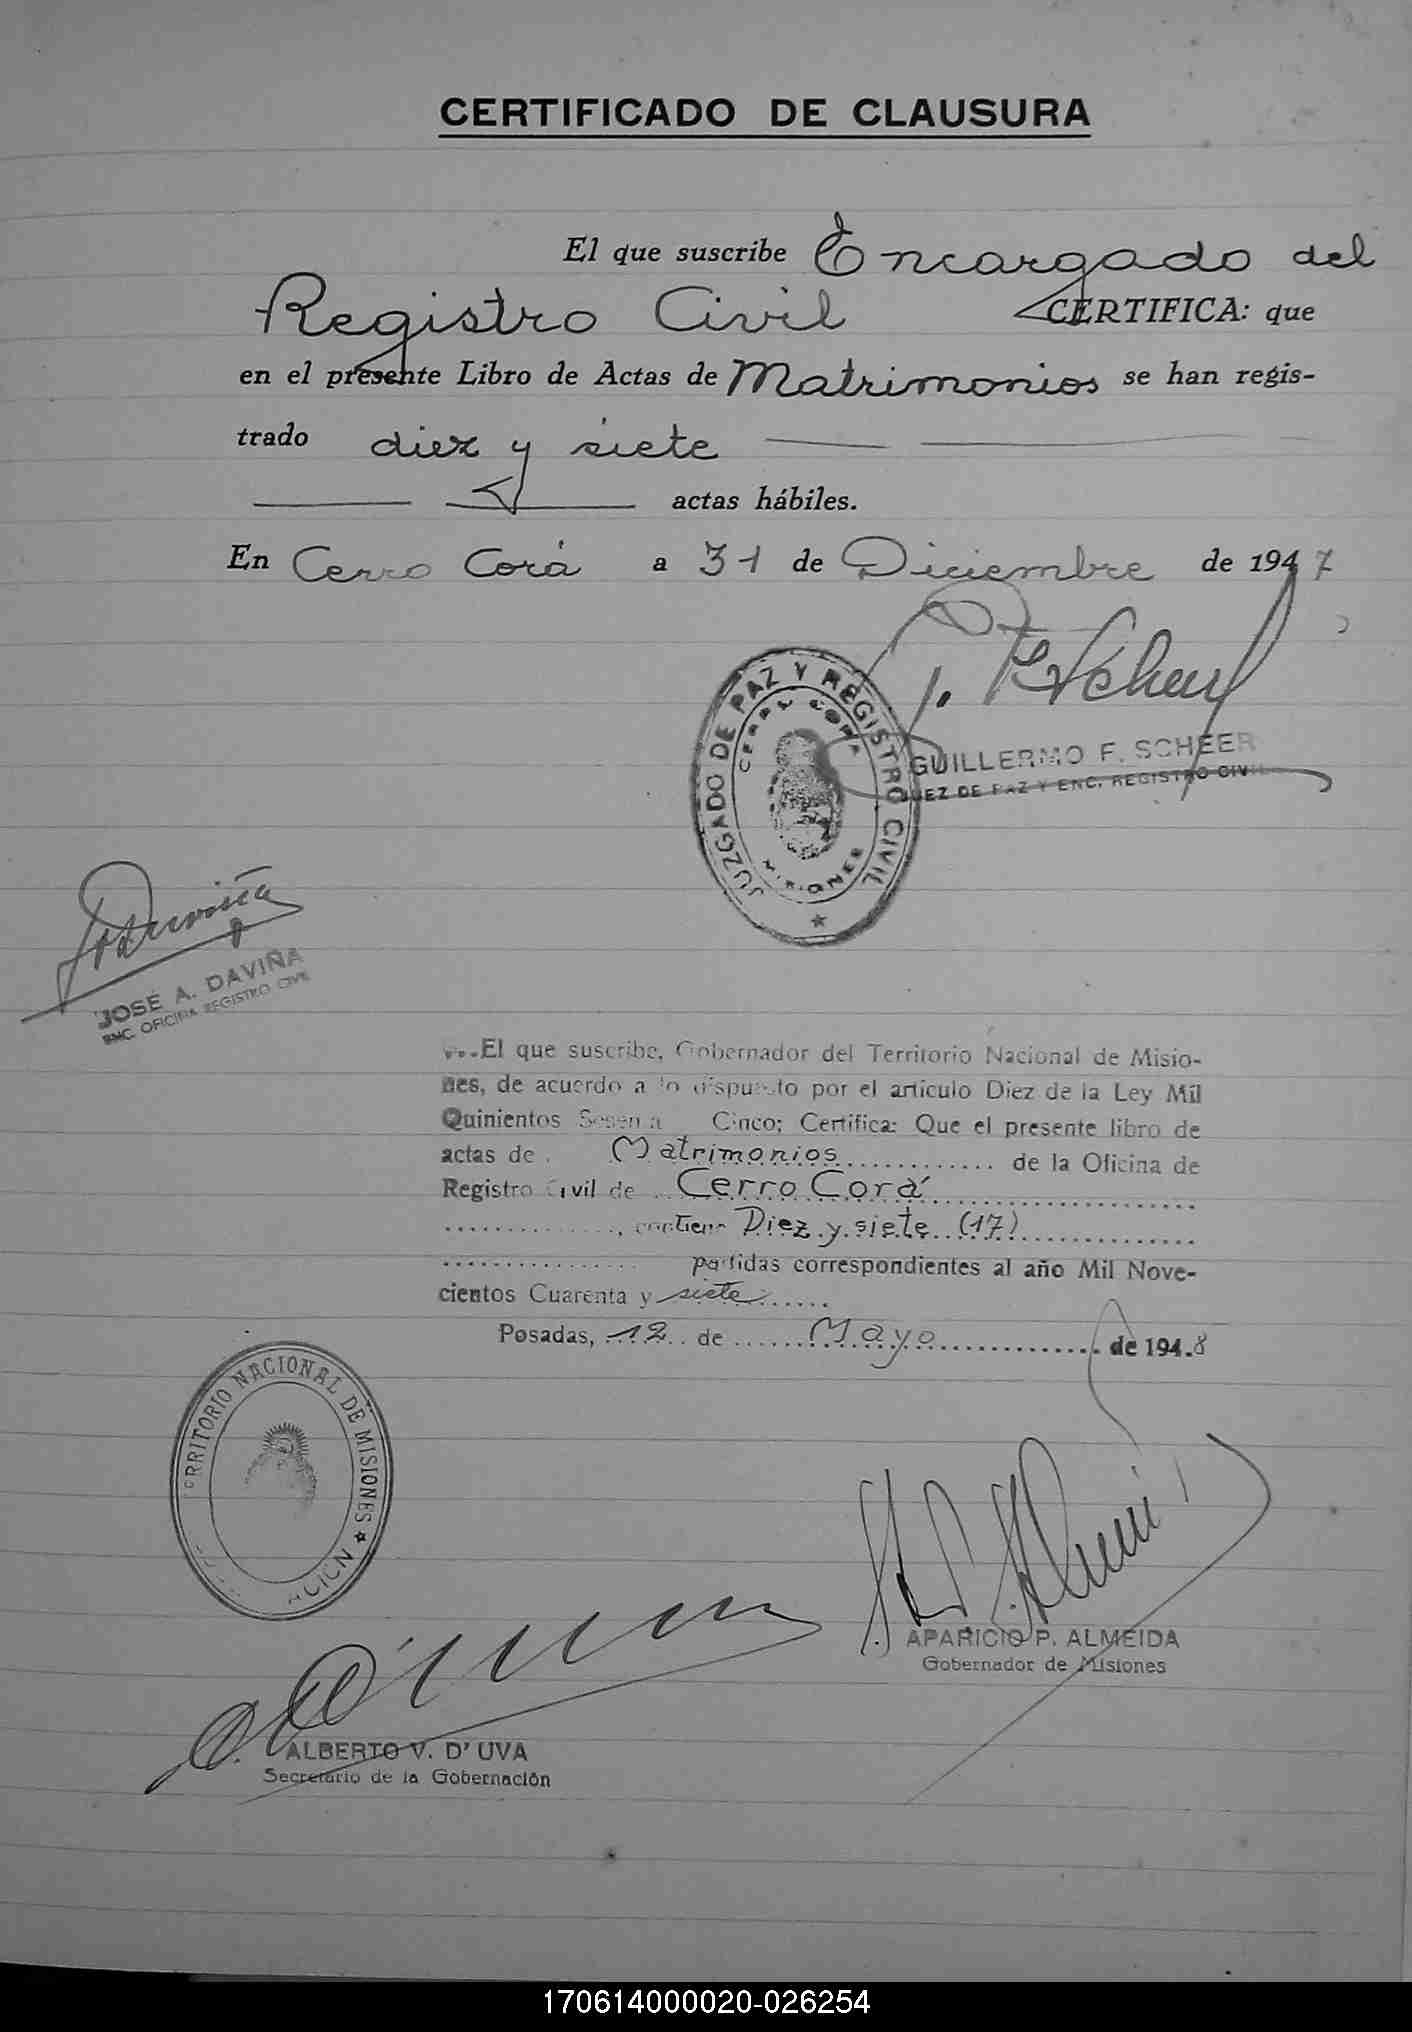 CERTIFICADO DE CLAUSURA
El que suscribe Encargado del
Registro Civil CERTIFICA: que
en el presente Libro de Actas de Matrimonios se han regis-
trado diez y siete
actas hábiles.
En Cerro Corá a 31 de Diciembre de 1947
JUZGADO DE PAZ Y REGISTRO CIVIL
CERRO CORA
MISIONES
GUILLERMO F. SCHEER
JUEZ DE PAZ Y ENC. REGISTRO CIVIL
JOSÉ A. DAVIÑA
ENC. OFICINA REGISTRO CIVIL
El que suscribe, Gobernador del Territorio Nacional de Misio-
nes, de acuerdo a lo dispuesto por el artículo Diez de la Ley Mil
Quinientos Sesenta Cinco; Certifica: Que el presente libro de
actas de Matrimonios de la Oficina de
Registro Civil de Cerro Corá
, contiene Diez y siete (17)
partidas correspondientes al año Mil Nove-
cientos Cuarenta y siete
Posadas, 12 de Mayo de 1948
TERRITORIO NACIONAL DE MISIONES
APARICIO P. ALMEIDA
Gobernador de Misiones
ALBERTO V. D'UVA
Secretario de la Gobernación
170614000020-026254